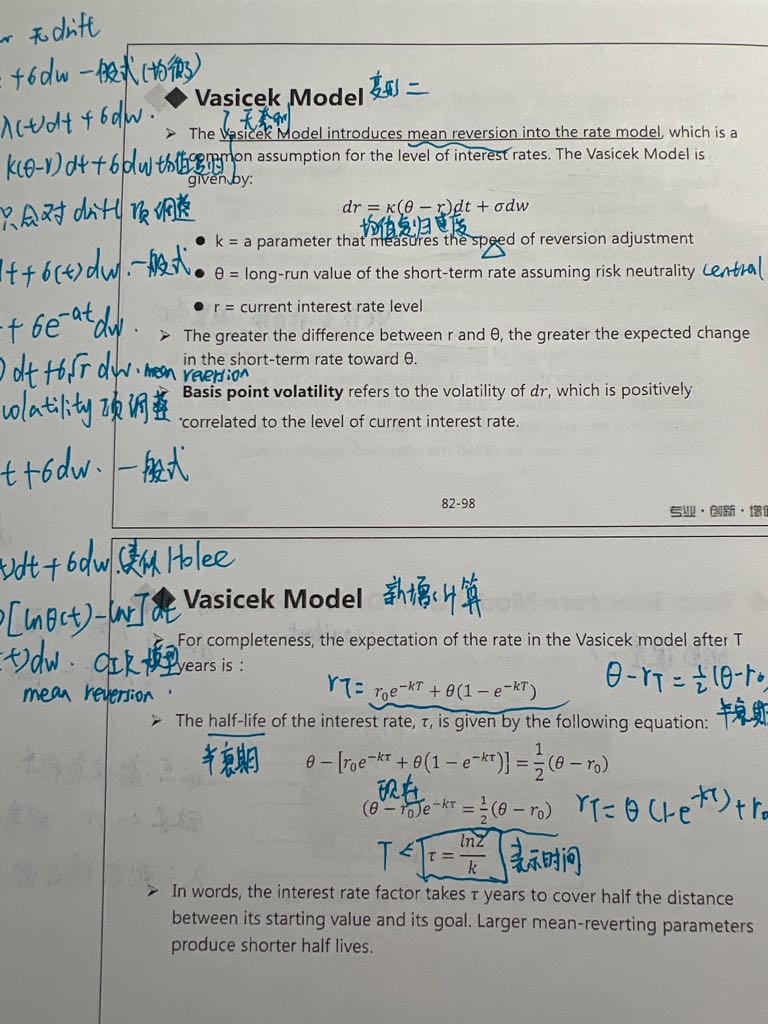 无drift
+6dw 一般式(均衡)
◆ Vasicek Model 变形二
λ(t)dt + 6dw. 无套利
➢ The Vasicek Model introduces mean reversion into the rate model, which is a
k(θ-r)dt+6dw 均值复归 common assumption for the level of interest rates. The Vasicek Model is
given by:
dr = κ(θ − r)dt + σdw
只会对drift项调整
均值复归速度
● k = a parameter that measures the speed of reversion adjustment
t+6(t)dw. 一般式 ● θ = long-run value of the short-term rate assuming risk neutrality central
● r = current interest rate level
+6e^{-at}dw.
➢ The greater the difference between r and θ, the greater the expected change
in the short-term rate toward θ.
)dt+6√r dw. mean reversion
➢ Basis point volatility refers to the volatility of dr, which is positively
volatility项调整 correlated to the level of current interest rate.
t+6dw. 一般式
82-98
专业·创新·增值
)dt+6dw. 类似Holee
◆ Vasicek Model 新增:计算
)[lnθ(t)-lnr]dt
➢ For completeness, the expectation of the rate in the Vasicek model after T
t)dw. CIR模型 years is :
mean reversion.
rT= r₀e^{−kT} + θ(1 − e^{−kT}) θ-rT=½(θ-r₀
➢ The half-life of the interest rate, τ, is given by the following equation: 半衰期
半衰期 θ − [r₀e^{−kτ} + θ(1 − e^{−kτ})] = 1/2 (θ − r₀)
现在
(θ − r₀)e^{−kτ} = 1/2 (θ − r₀) rT=θ(1-e^{-kT})+r₀
T < τ = ln2/k 表示时间
➢ In words, the interest rate factor takes τ years to cover half the distance
between its starting value and its goal. Larger mean-reverting parameters
produce shorter half lives.